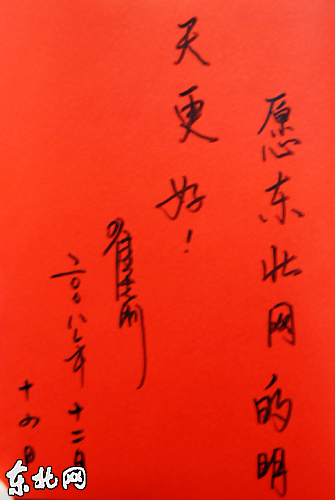 愿东北网的明
天更好！
二〇〇八年十二月
十四日
东北网